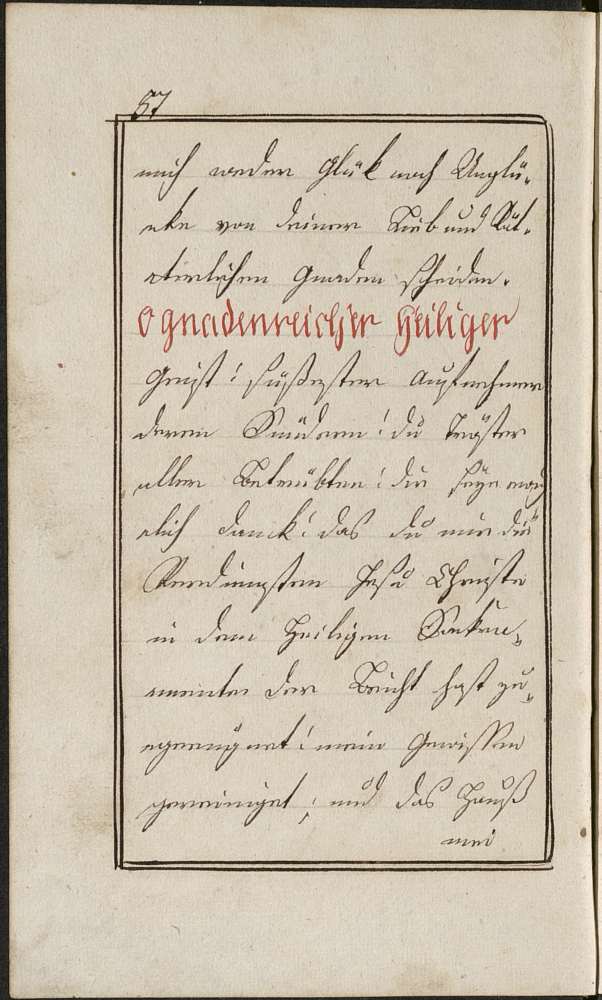 57
mich weder Glük noch Unglü-
cke von deiner Lieb und Vät-
terlichen Gnaden scheiden.
O gnadenreicher Heiliger
Geist! süßester Aufnehmer
deren Sündern! du Tröster
aller Betrübten! dir seye ewig
lich danck! das du mir die
Verdiensten Jesu Christi
in dem Heiligen Sackra-
mente der Beicht hast zu-
egeeignet! mein Gewissen
gereiniget; und das Hauß
mei